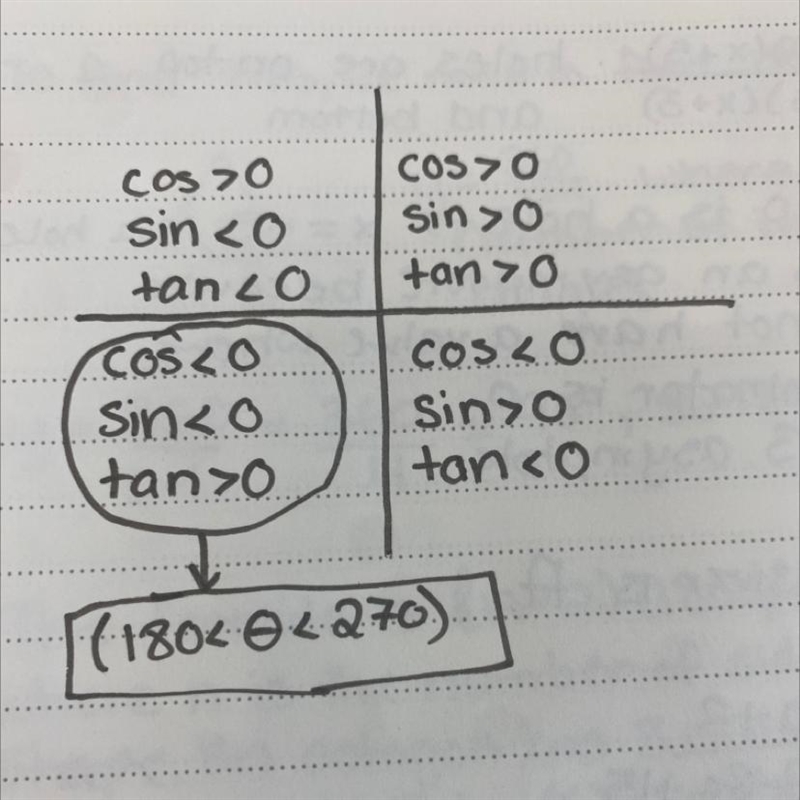 cos>0
sin<0
tan<0
cos>0
sin>0
tan>0
cos<0
sin<0
tan>0
cos<0
sin>0
tan<0
(180<θ<270)